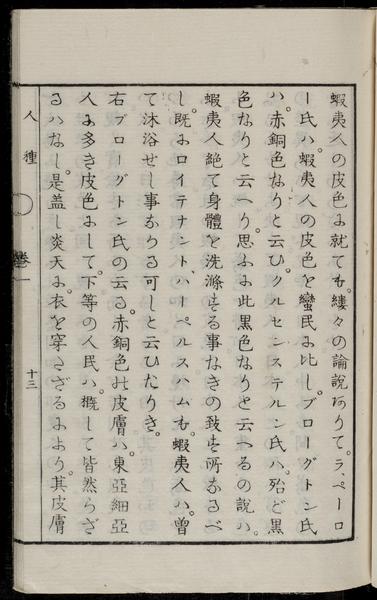 蝦夷人の皮色に就ても。縷々の論說ありて。ラ、ペーロ
ー氏ハ。蝦夷人の皮色を蠻民に比し。ブローグトン氏
ハ。赤銅色なりと云ひ。クルセンステルン氏ハ。殆ど黒
色なりと云へり。思ふに此黒色なりと云へるの說ハ。
蝦夷人絶て身體を洗滌する事なきの致す所なるべ
し。既にロイテナント、ハーペルスハムも。蝦夷人ハ。曾
て沐浴せし事なかる可しと云ひたりき。
右ブローグトン氏の云る。赤銅色の皮膚ハ。東亞細亞
人に多き皮色にして。下等の人民ハ。概して皆然らざ
るハなし。是盖し炎天に。衣を穿さざるにより。其皮膚
人種
卷一
十三